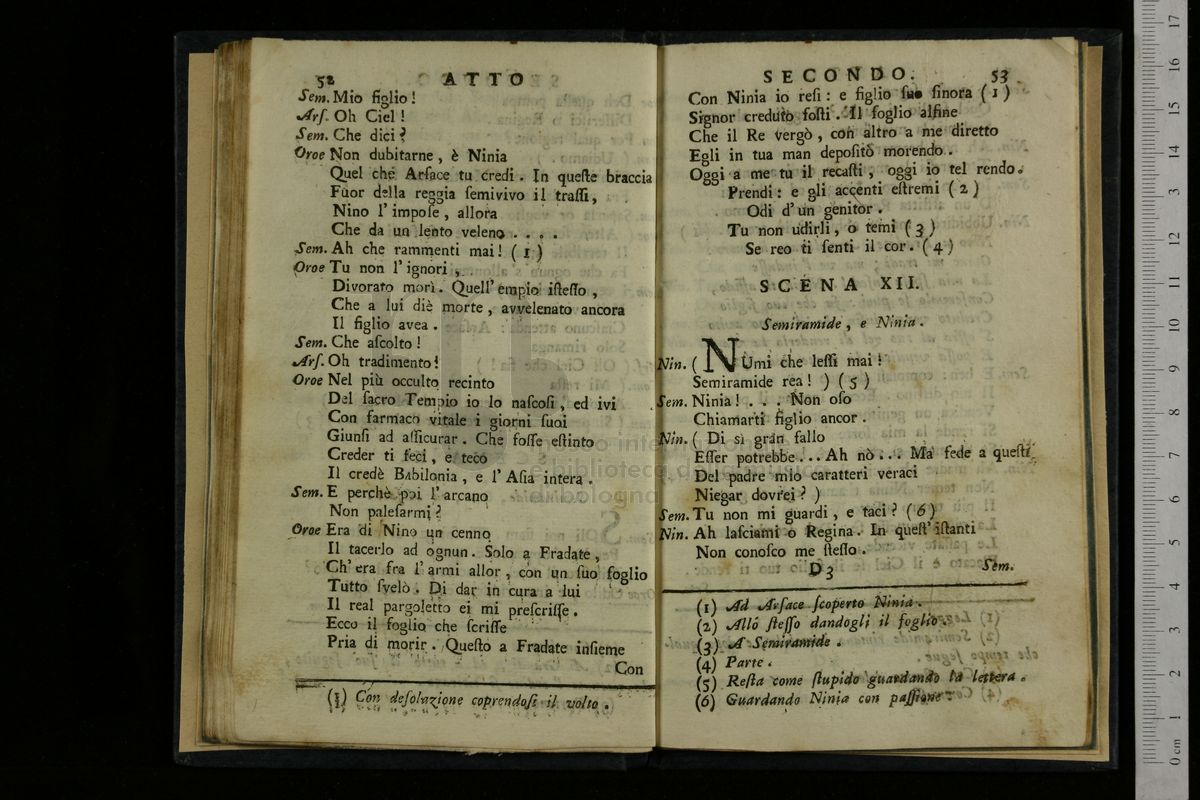 52 ATTO
Sem. Mio figlio!
Arſ. Oh Ciel!
Sem. Che dici?
Oroe Non dubitarne, è Ninia
Quel che Arſace tu credi. In queſte braccia
Fuor della reggia ſemivivo il traſſi,
Nino l'impoſe, allora
Che da un lento veleno....
Sem. Ah che rammenti mai! (1)
Oroe Tu non l'ignori,
Divorato morì. Quell'empio iſteſſo,
Che a lui diè morte, avvelenato ancora
Il figlio avea.
Sem. Che aſcolto!
Arſ. Oh tradimento!
Oroe Nel più occulto recinto
Del ſacro Tempio io lo naſcoſi, ed ivi
Con farmaco vitale i giorni ſuoi
Giunſi ad aſſicurar. Che foſſe eſtinto
Creder ti feci, e teco
Il credè Babilonia, e l'Aſia intera.
Sem. E perchè poi l'arcano
Non paleſarmi?
Oroe Era di Nino un cenno
Il tacerlo ad ognun. Solo a Fradate,
Ch'era fra l'armi allor, con un ſuo foglio
Tutto ſvelò. Di dar in cura a lui
Il real pargoletto ei mi preſcriſſe.
Ecco il foglio che ſcriſſe
Pria di morir. Queſto a Fradate inſieme
Con
(1) Con deſolazione coprendoſi il volto.
SECONDO. 53
Con Ninia io reſi: e figlio ſuo ſinora (1)
Signor creduto foſti. Il foglio alfine
Che il Re vergò, con altro a me diretto
Egli in tua man depoſitò morendo.
Oggi a me tu il recaſti, oggi io tel rendo.
Prendi: e gli accenti eſtremi (2)
Odi d'un genitor.
Tu non udirli, o temi (3)
Se reo ti ſenti il cor. (4)
SCENA XII.
Semiramide, e Ninia.
Nin. ( NUmi che leſſi mai!
Semiramide rea! ) (5)
Sem. Ninia!... Non oſo
Chiamarti figlio ancor.
Nin. ( Di sì gran fallo
Eſſer potrebbe... Ah nò... Ma fede a queſti
Del padre mio caratteri veraci
Niegar dovrei? )
Sem. Tu non mi guardi, e taci? (6)
Nin. Ah laſciami o Regina. In queſt'iſtanti
Non conoſco me ſteſſo.
D3 Sem.
(1) Ad Arſace ſcoperto Ninia.
(2) Allo ſteſſo dandogli il foglio.
(3) A Semiramide.
(4) Parte.
(5) Reſta come ſtupido guardando la lettera.
(6) Guardando Ninia con paſſione.
17
16
15
14
13
12
11
10
9
8
7
6
5
4
3
2
1
0 cm